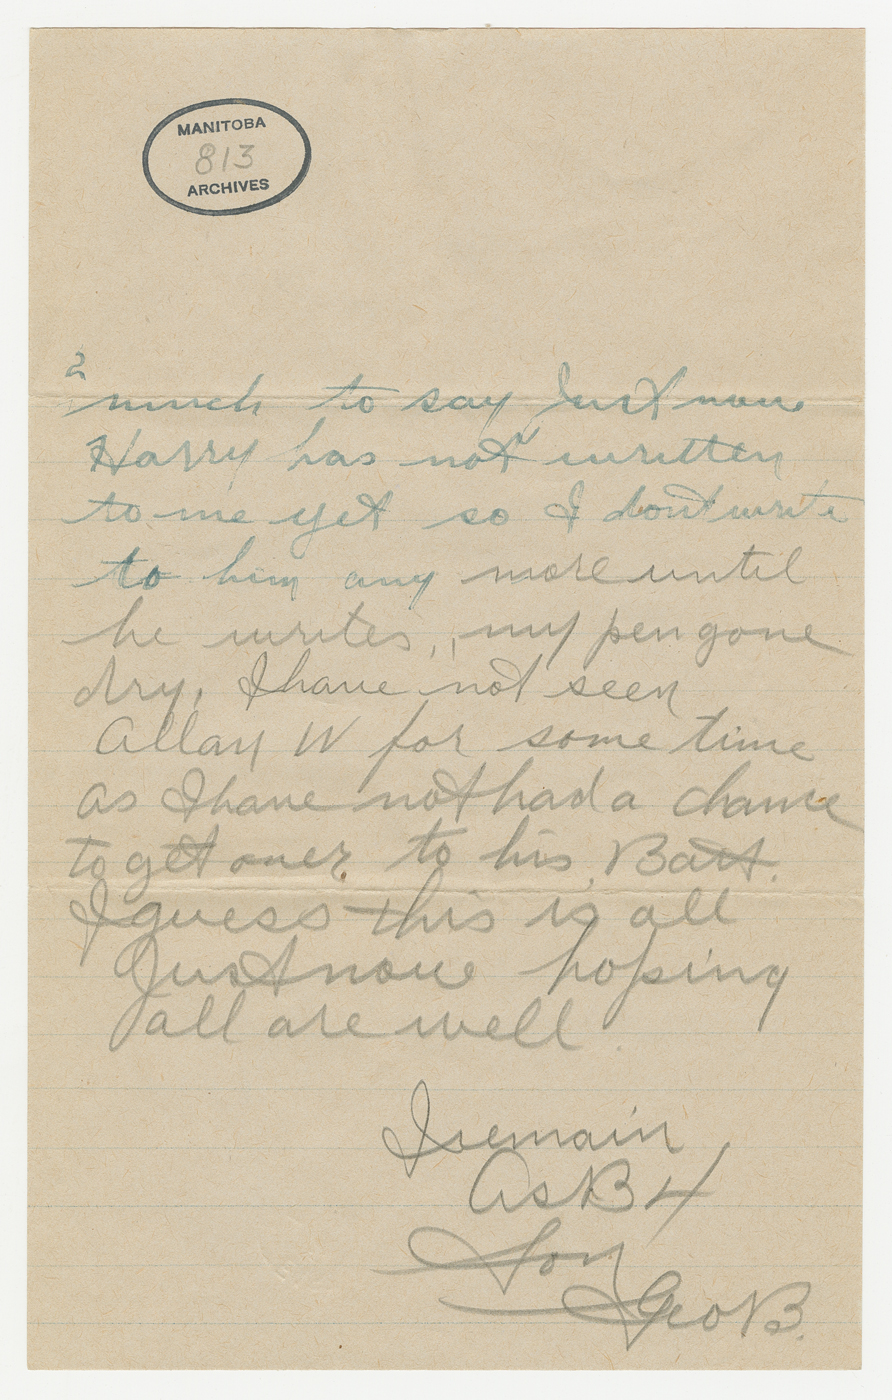 MANITOBA
813
ARCHIVES
2
much to say Just now
Harry has not written
to me yet so I dont write
to him any more until
he writes,, my pen gone
dry, I have not seen
Allan W for some time
as I have not had a chance
to get over to his Batt.
I guess this is all
Just now hoping
all are well.
I remain
As B4
Son
Geo B.